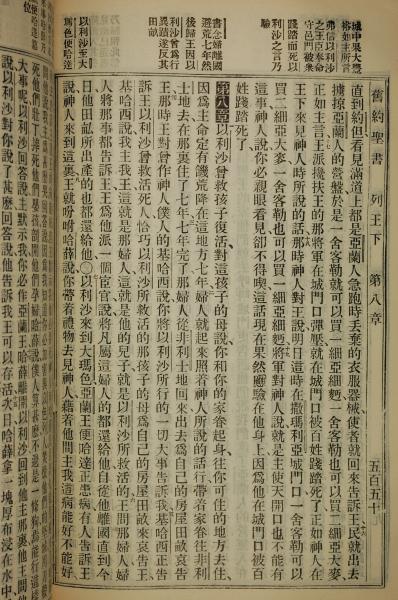 舊約聖書 列王下 第八章 五百五十
城中果大豐
裕如主所言
弗信以利沙
之王臣奉命
守邑門被衆
踐踏而死以
利沙之言乃
驗
直到約但看見滿道上都是亞蘭人急跑時丟棄的衣服器械使者就回來告訴王民就出去
擄掠亞蘭人的營盤於是一舍客勒就可以買一細亞細麪一舍客勒也可以買二細亞大麥
正如主言王派攙扶王的那將軍在城門口彈壓就在城門口被百姓踐踏死了正如神人在
王下來見神人時所說的話那時神人對王說明日這時在撒瑪利亞城門口一舍客勒可以
買二細亞大麥一舍客勒也可以買一細亞細麪將軍對神人說就是主使天開口也不能有
這事神人說你必親眼看見卻不得喫這話現在果然應驗在他身上因爲他在城門口被百
姓踐踏死了
書念婦離國
避荒七年然
後歸王因以
利沙曾爲行
異蹟遂反其
田畝
第八章以利沙曾救孩子復活對這孩子的母說你和你的家眷起身往你可住的地方去住
因爲主命定有饑荒降在這地方七年婦人就起來照着神人所說的話行帶着家眷往非利
士地去在那裏住了七年七年完了那婦人從非利士地回來出去爲自己的房屋田畝哀告
王那時王對曾作神人僕人的基哈西說你將以利沙所行的一切大事告訴我基哈西正告
訴王以利沙曾救活死人恰巧以利沙所救活的那孩子的母爲自己的房屋田畝來哀告王
基哈西說我主我王這就是那婦人這就是他的兒子就是以利沙所救活的王問那婦人婦
人將那事都告訴王王爲他派一個宦官說將凡屬這婦人的都還給他自從他離國直到今
以利沙至大
瑪色便哈達
日他田畝所出產的也都還給他○以利沙來到大瑪色亞蘭王便哈達正患病有人告訴王
說神人來到這裏王就吩咐哈薛說你帶着禮物去見神人藉着他問主我這病能好不能好
說以利沙對你說了甚麼回答說他告訴我王可以存活次日哈薛拿一塊厚布浸在水中
大事呢以利沙回答說主默示我你必作亞蘭王哈薛離開以利沙回到他主那裏王問他
死他們壯丁摔死他們嬰孩剖開他們孕婦哈薛說僕人算甚麼不過是一條狗焉能行這樣